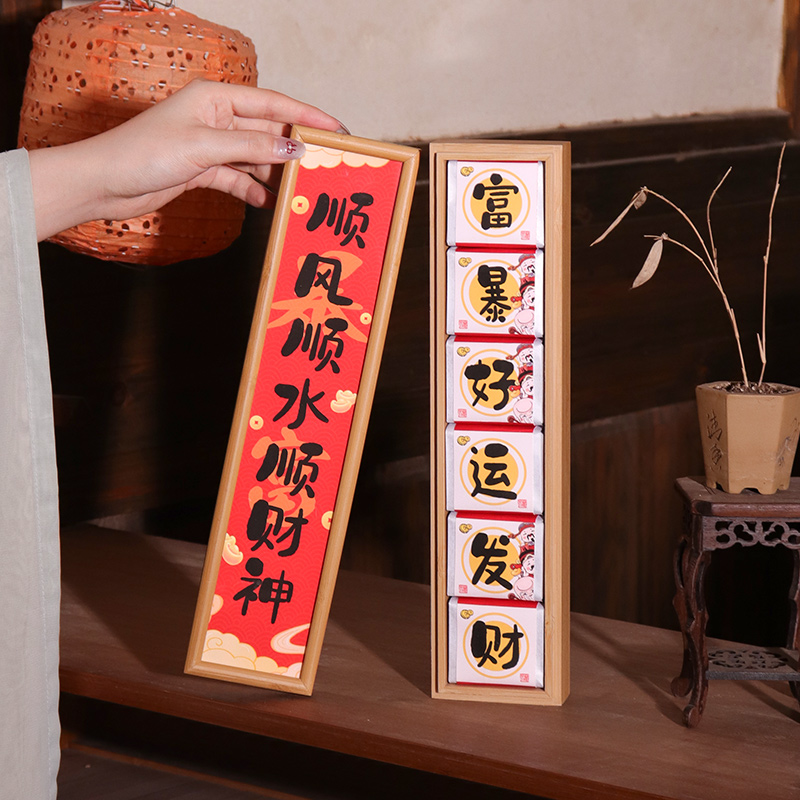 顺风顺水顺财神
富
暴
好
运
发
财